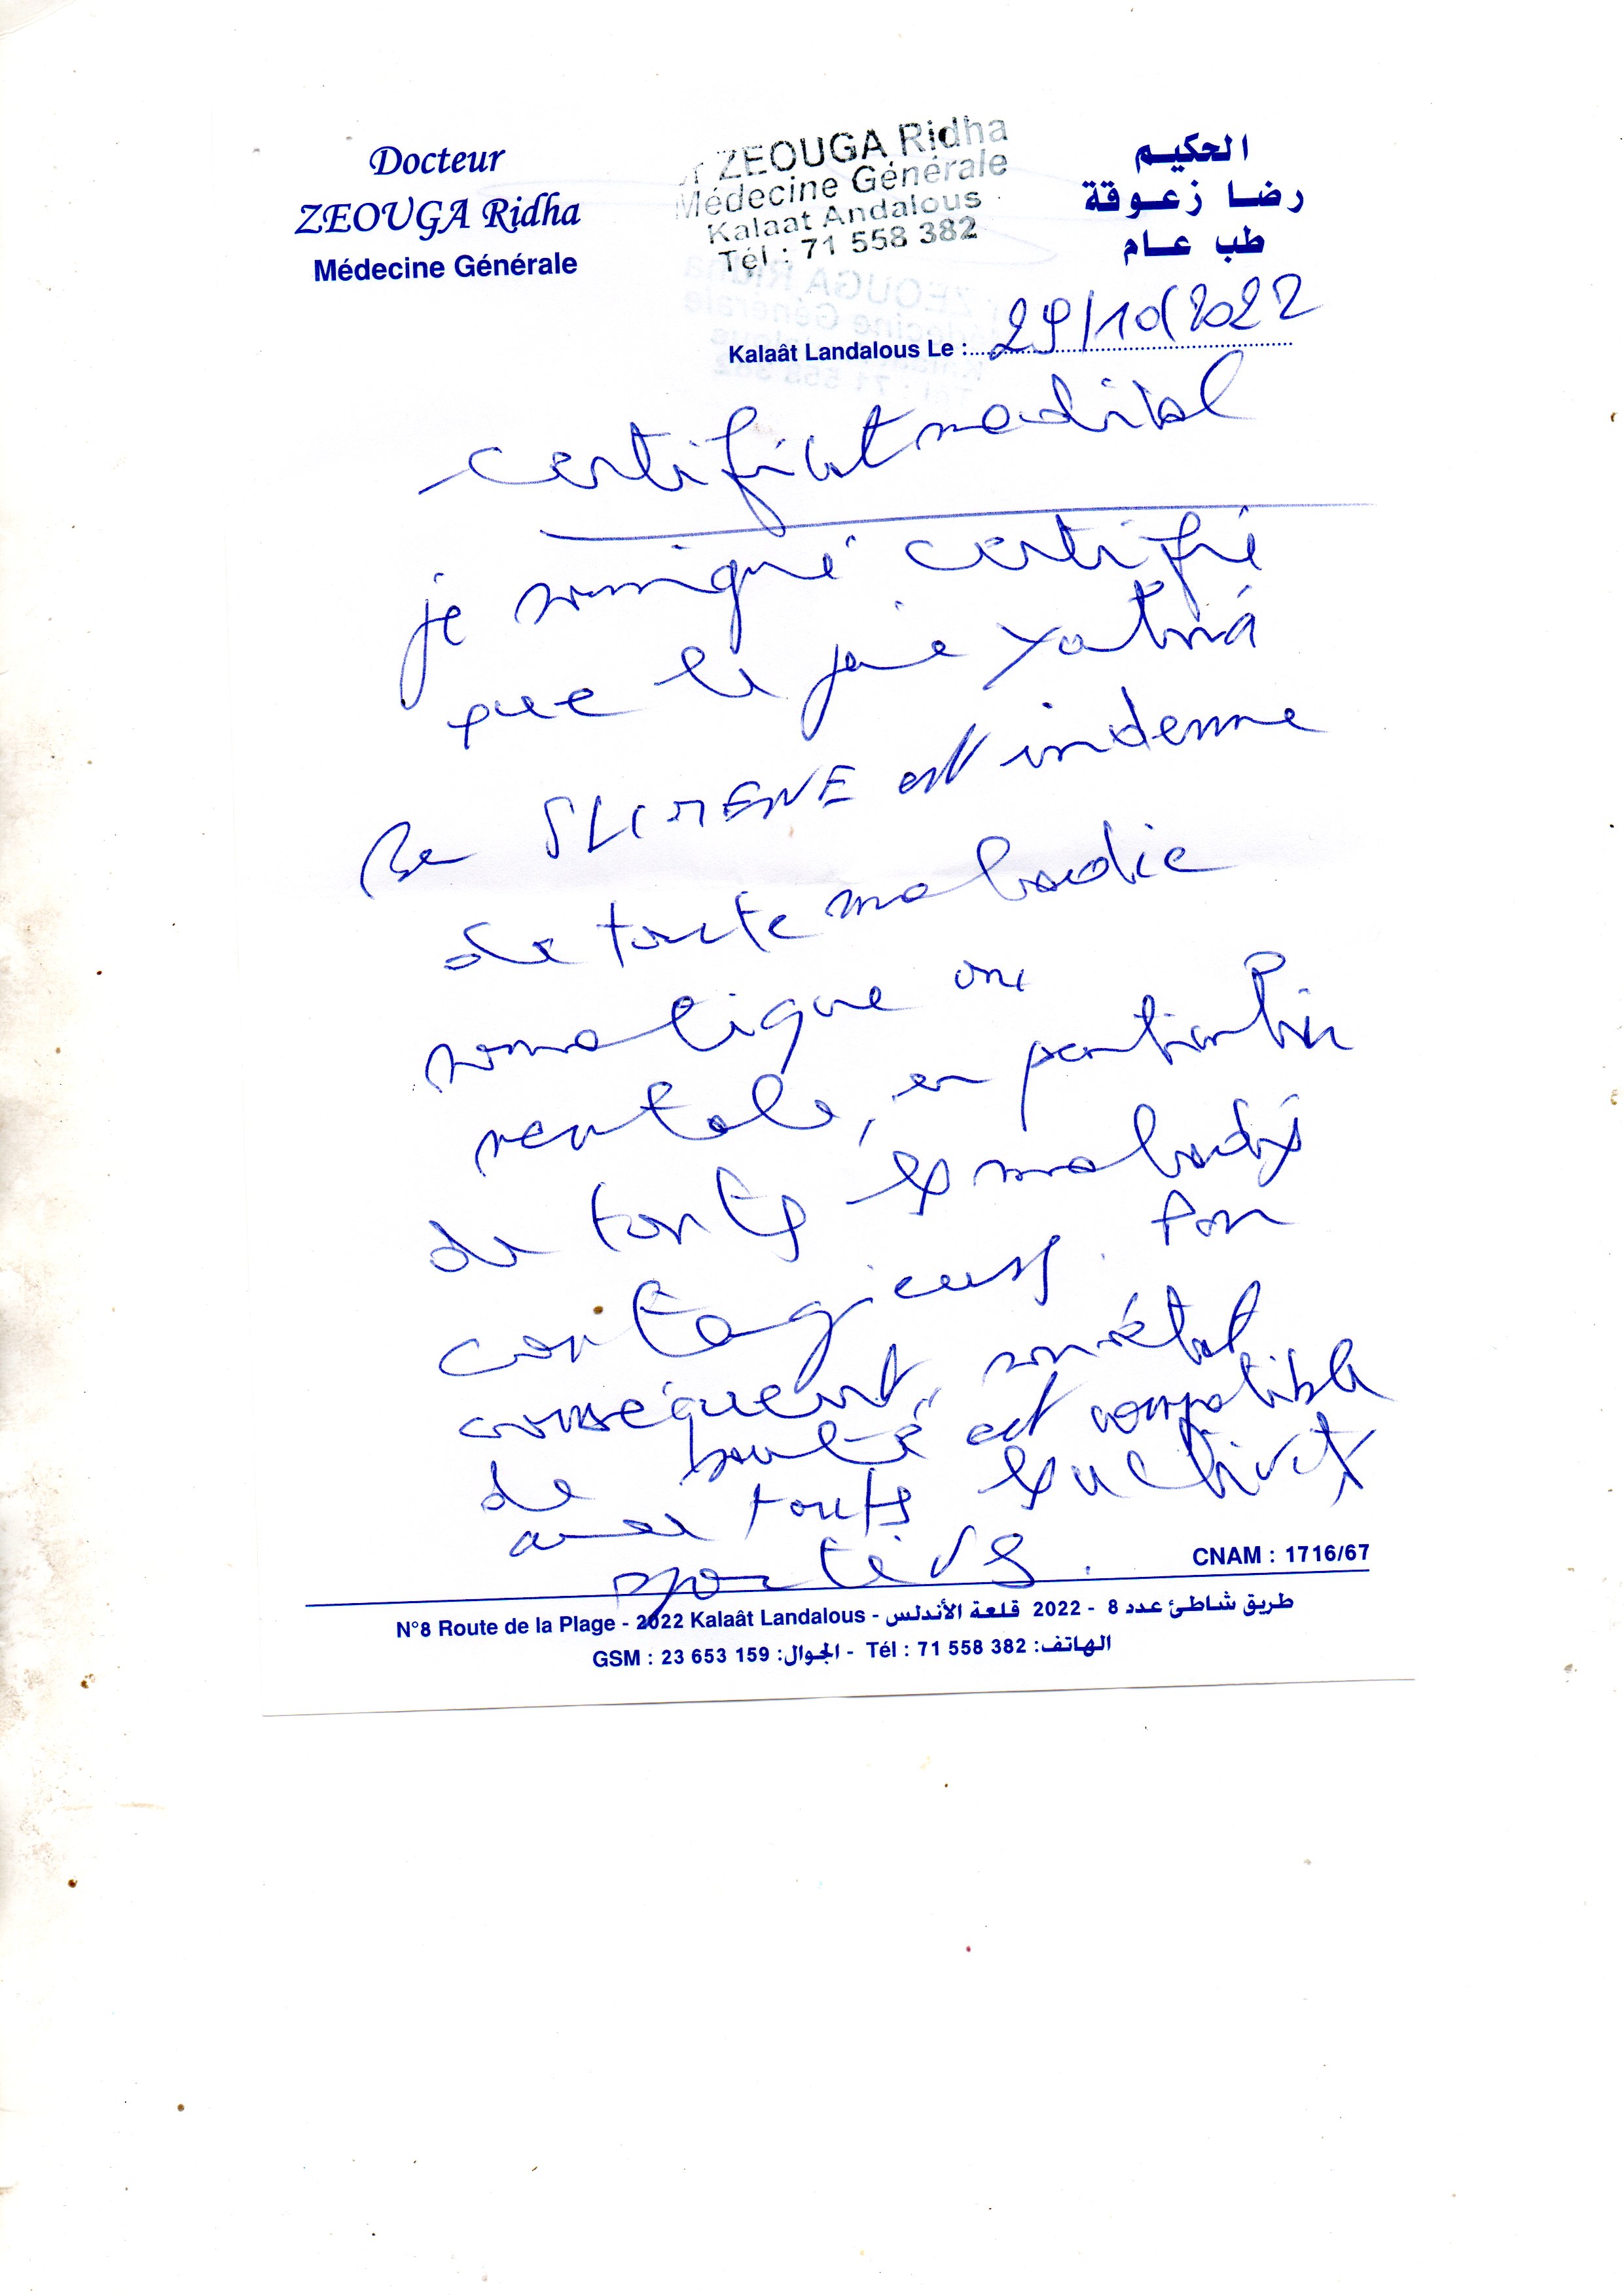 Docteur
ZEOUGA Ridha
Médecine Générale
Dr ZEOUGA Ridha
Médecine Générale
Kalaat Andalous
Tél : 71 558 382
الحكيم
رضا زعوقة
طب عام
Kalaât Landalous Le : 29/10/2022
certificat medical
je soussigné certifié
que le
Ben SLIMENE est indemne
de toute maladie
somatique ou
mentale, en particulier
de toutes les maladies
contagieuses. Par
conséquent, son état
de santé est compatible
avec toutes les activités
sportives.
CNAM : 1716/67
N°8 Route de la Plage - 2022 Kalaât Landalous - طريق شاطئ عدد 8 - 2022 قلعة الأندلس
GSM : 23 653 159 :الجوال - Tél : 71 558 382 :الهاتف